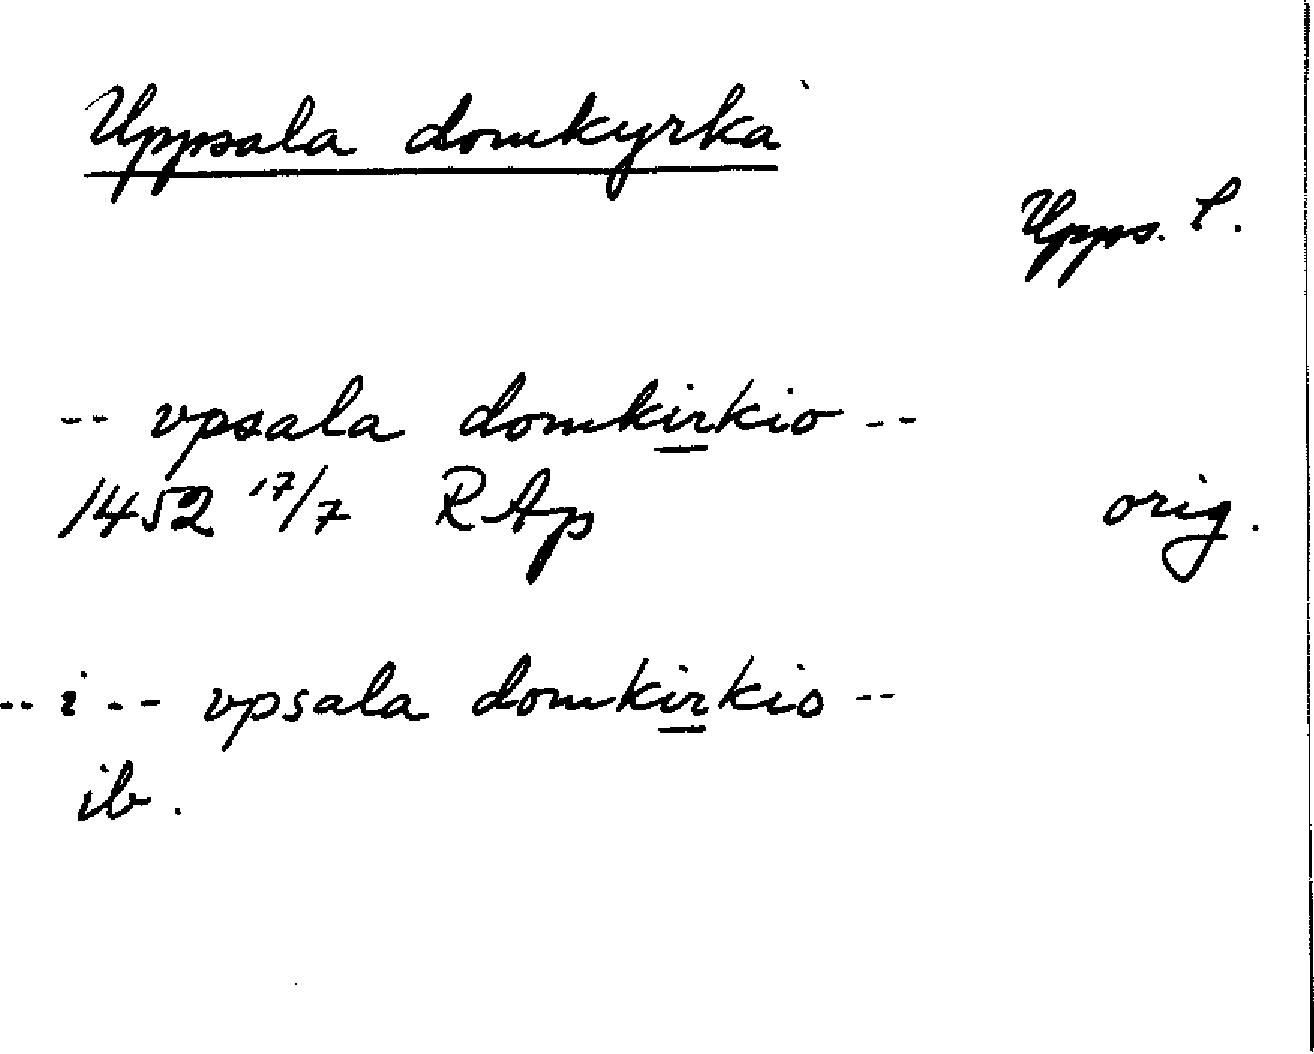 Uppsala domkyrka
Upps. l.
-- vpsala domkirkio --
1452 17/7 RAp orig.
-- i -- vpsala domkirkio --
ib.